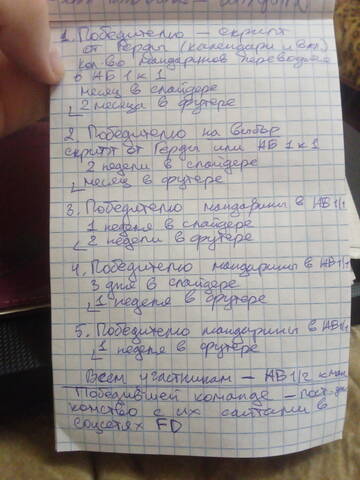 1. Победителю — скрипт
от Герды (календари и вкл)
кол-во мандаринов переводим
в АБ 1 к 1
месяц в слайдере
2 месяца в футере
2 Победителю на выбор
скрипт от Герды или АБ 1 к 1
2 недели в слайдере
месяц в футере
3. Победителю мандарины в АБ 1/1
1 неделя в слайдере
2 недели в футере
4. Победителю мандарины в АБ 1/1
3 дня в слайдере
1 неделя в футере
5. Победителю мандарины в АБ 1/1
1 неделя в футере
Всем участникам — АБ 1/2 к ман
Победившей команде — пост-
комство с их сайтами в
соцсетях FD